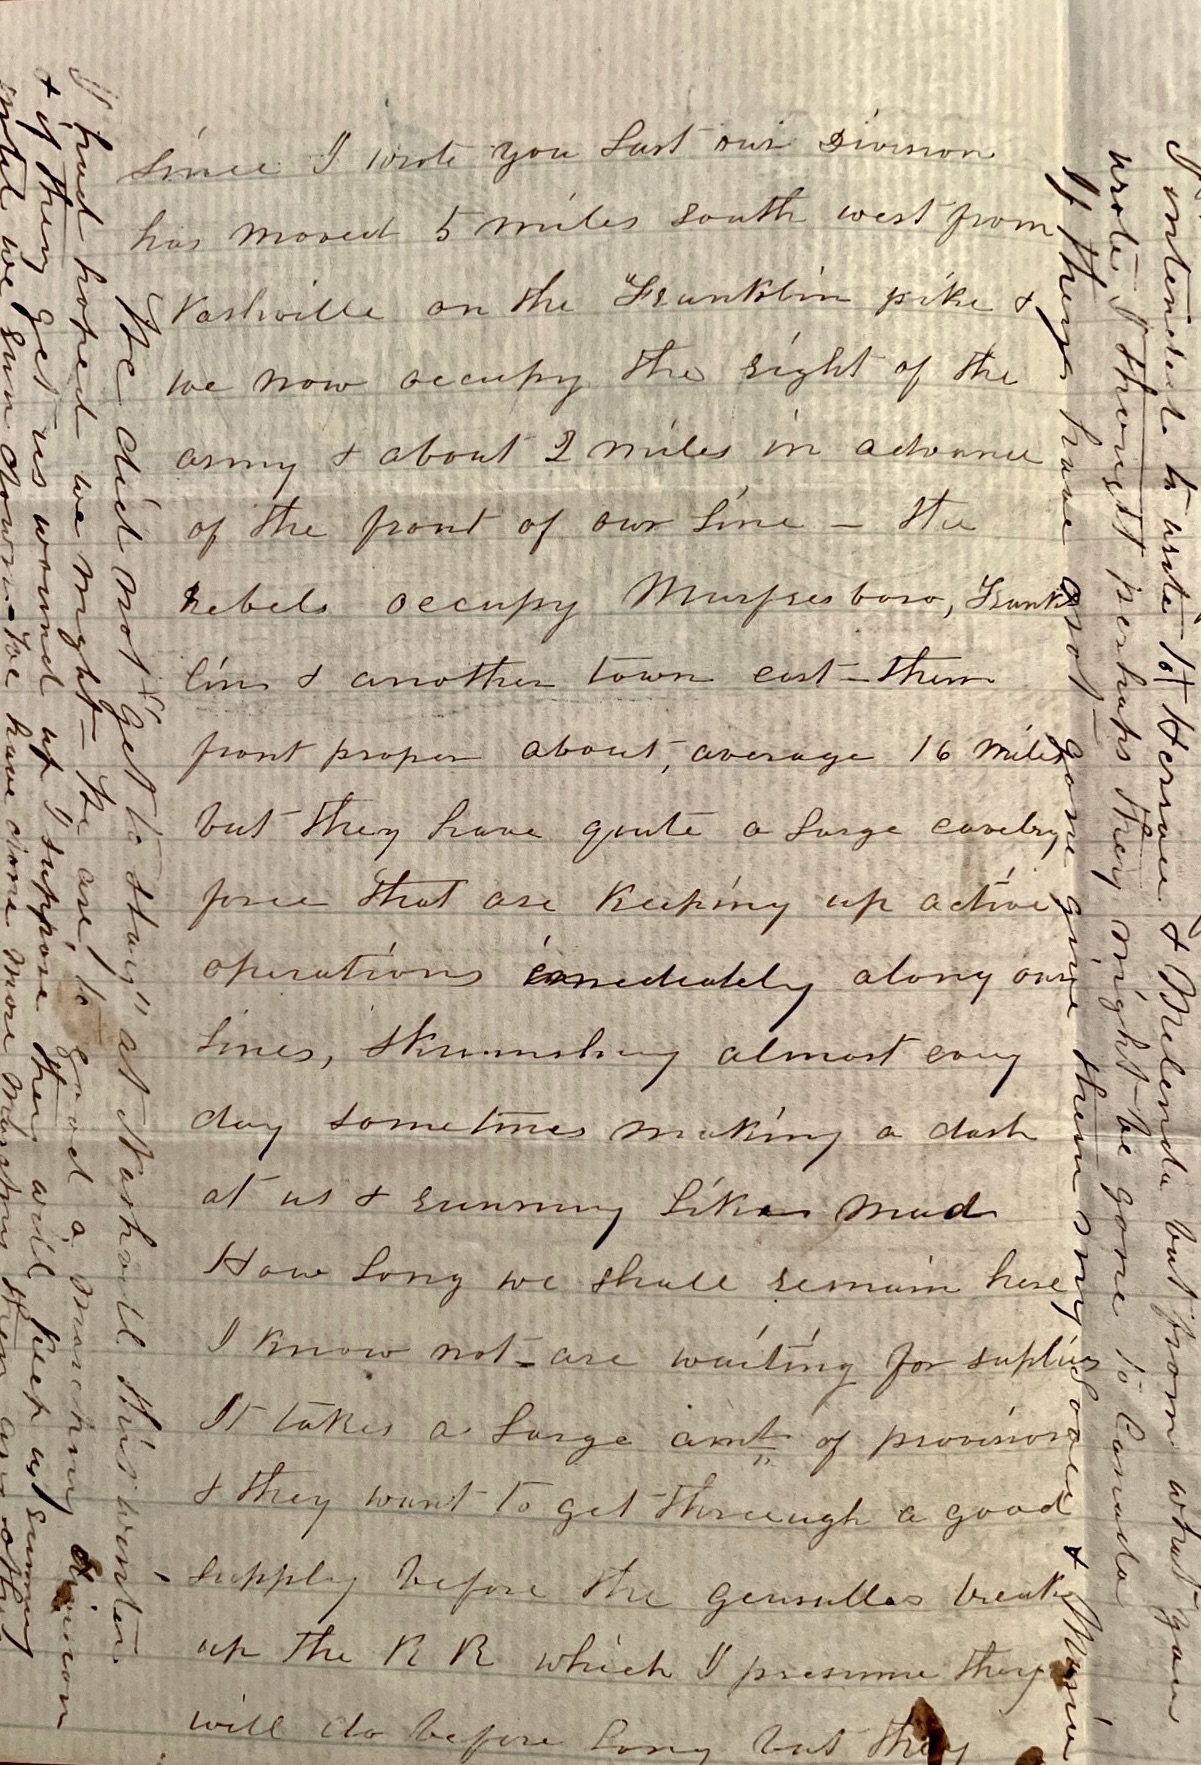 Since I wrote you last our Division
has moved 5 miles south west from
Nashville on the Franklin pike &
we now occupy the right of the
army & about 2 miles in advance
of the front of our line – the
rebels occupy Murfresboro, Frank
lin & another town east – them
front proper about, average 16 miles
but they have quite a large cavelry
force that are keeping up active
operations immediately along our
lines, skirmishing almost evry
day sometimes making a dash
at us & running like mad
How long we shall remain here
I know not – are waiting for suplies
It takes a large amt of provision
& they want to get threeugh a good
supply before the
break
up the R R which I presume they
will do before long but they
We did not "get to stay" at Nashvill this winter
I had hoped we might – We are, to good a marching Division
& if they get us wound up I suppose they will keep us running
until we run down – We have done more marching than any other
If they have not gone give them my Love &
wrote, I thought perhaps they might be gone to Canada
I intended to write to & Melinda but from what you